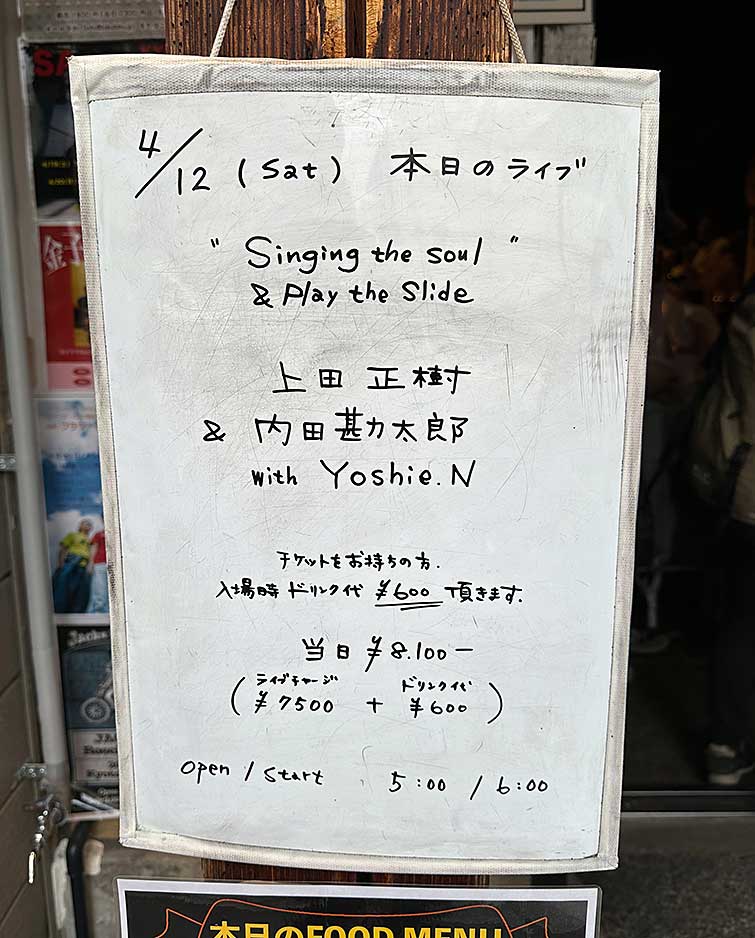 4/12 (Sat) 本日のライブ
" Singing the soul "
& Play the Slide
上田 正樹
& 内田勘太郎
with Yoshie.N
チケットをお持ちの方.
入場時 ドリンク代 ¥600 頂きます.
当日 ¥8.100ー
ライブチャージ ドリンク代
( ¥7500 + ¥600 )
open / start 5:00 / 6:00
本日のFOOD MENU
金子